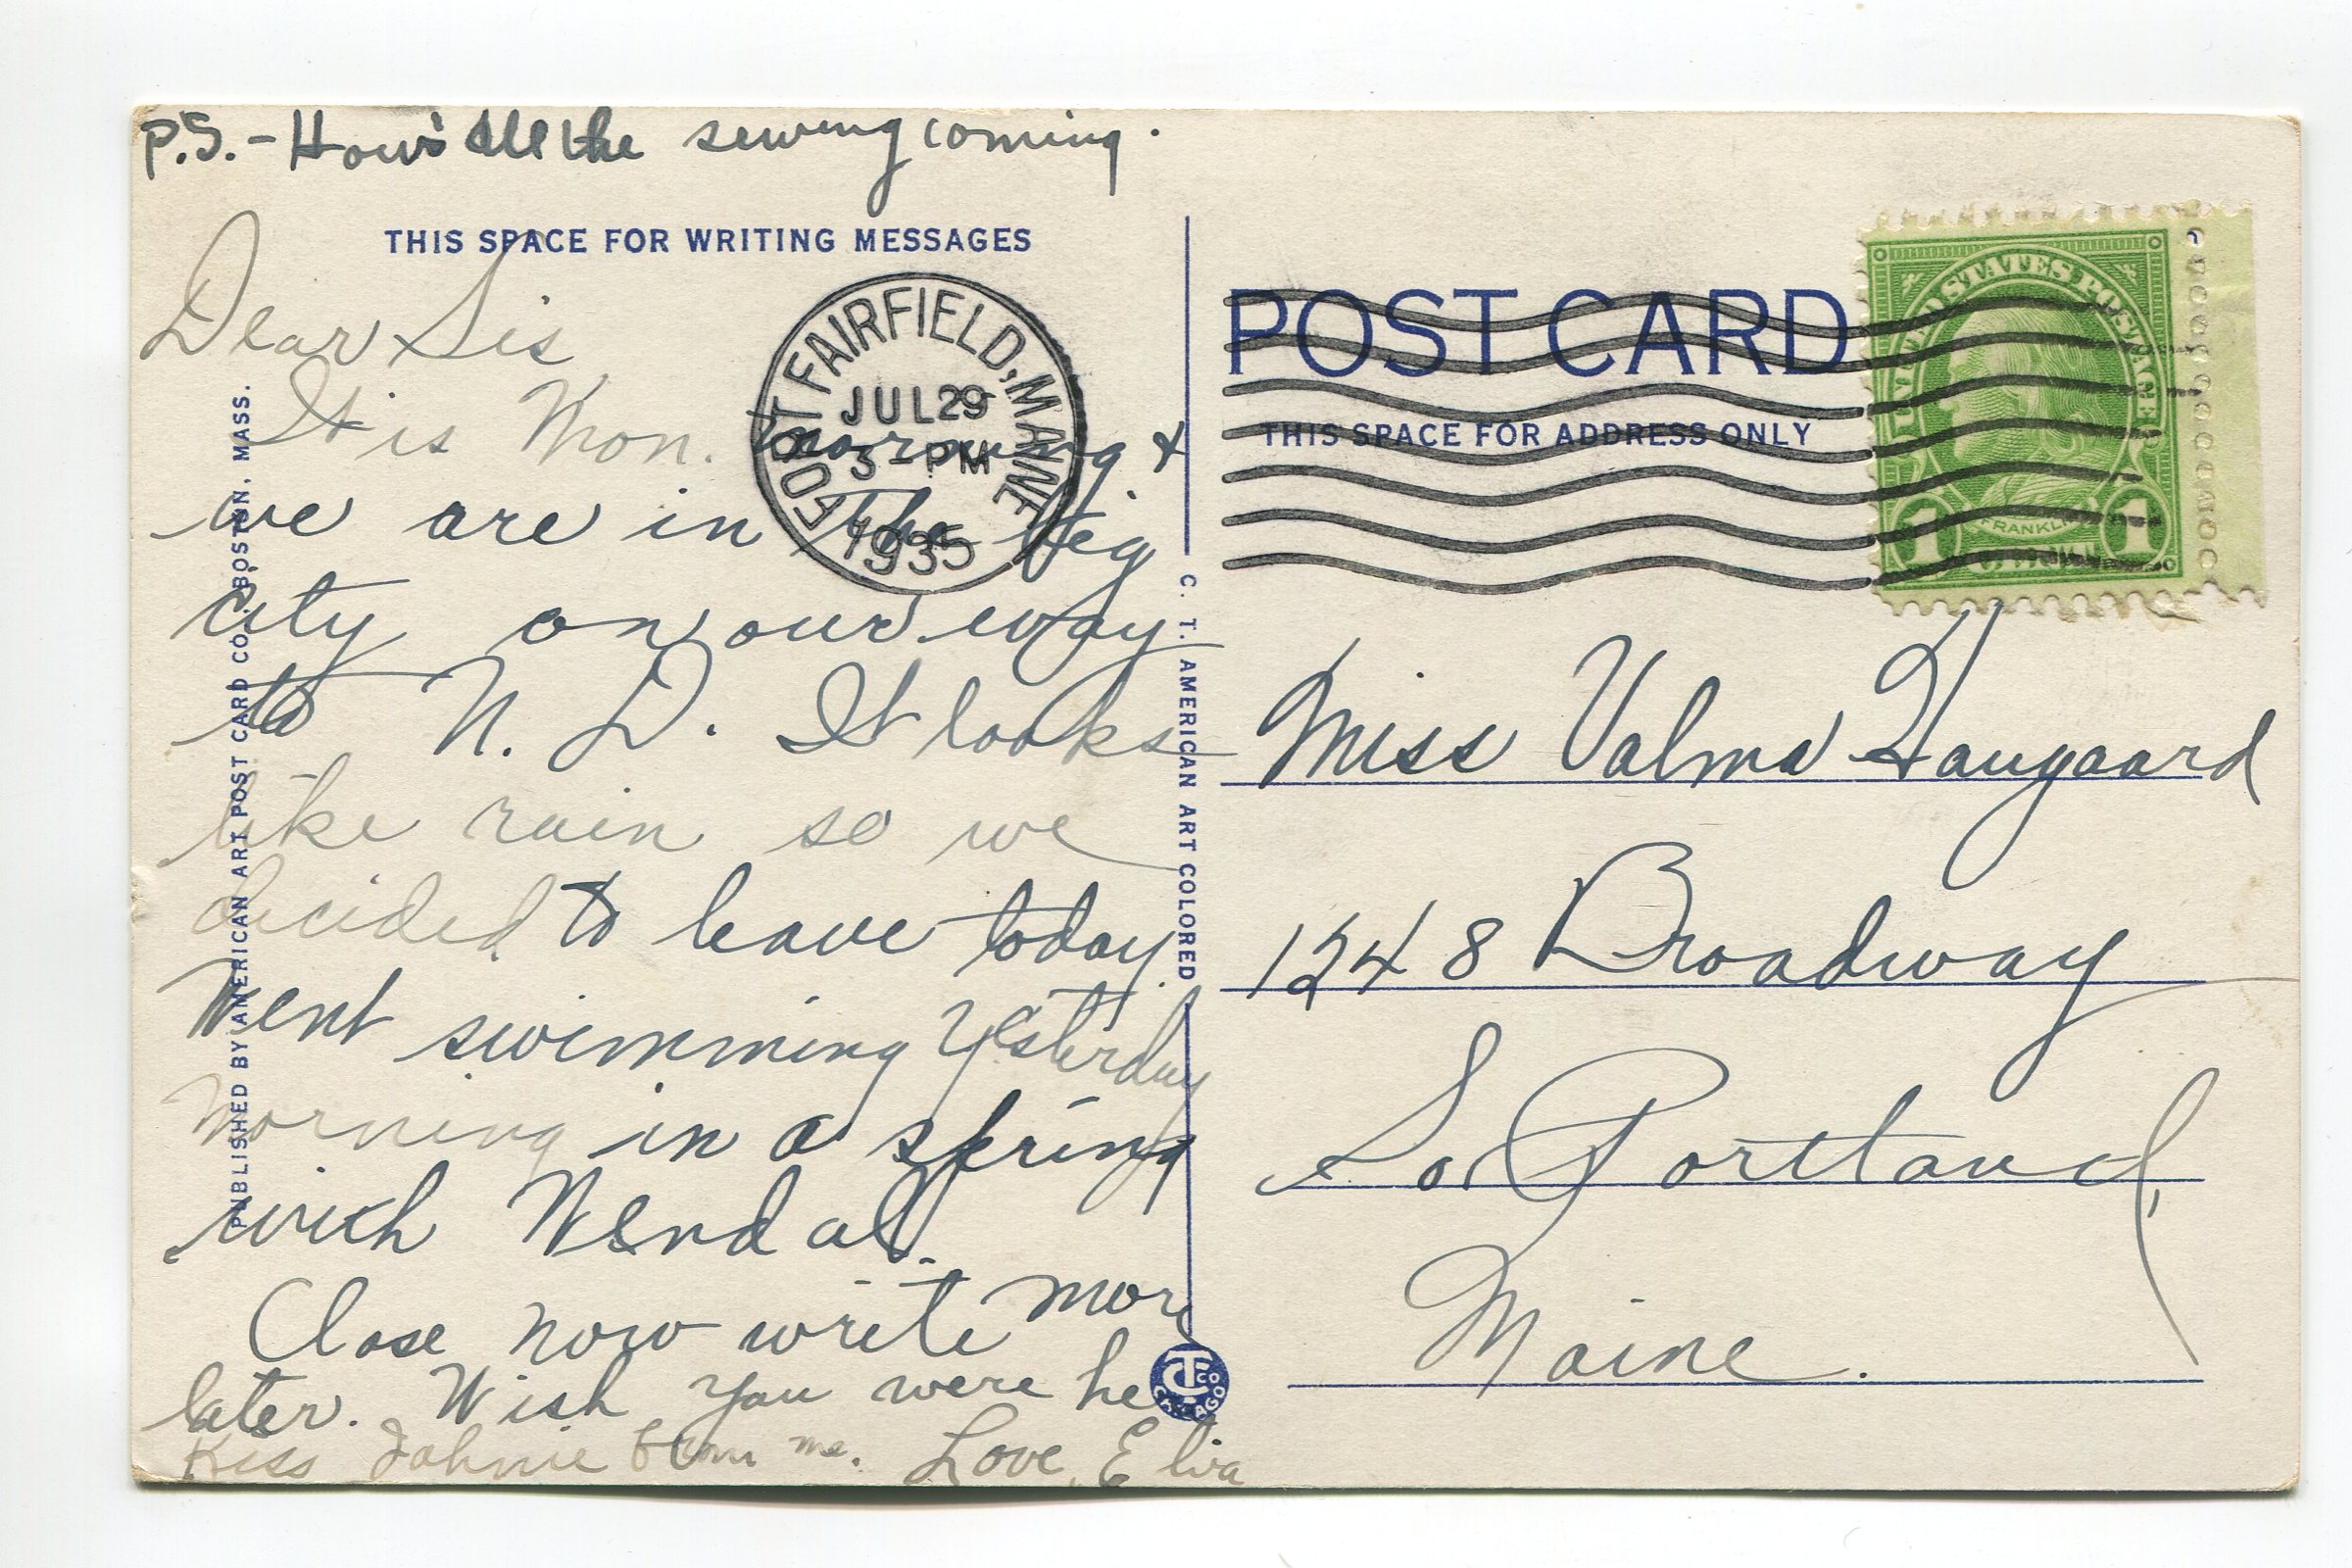 P.S.- How's all the sewing coming.
THIS SPACE FOR WRITING MESSAGES
Dear Sis
It is Mon. morning &
we are in the big
city on our way
to N. D. It looks
like rain so we
decided to leave today.
Went swimming yesterday
morning in a spring
with Wendal.
Close now write more
later. Wish you were he
Kiss Johnie from me. Love, Elva
PUBLISHED BY AMERICAN ART POST CARD CO., BOSTON, MASS.
FORT FAIRFIELD, MAINE
JUL 29
3 - PM
1935
C. T. AMERICAN ART COLORED
POST CARD
THIS SPACE FOR ADDRESS ONLY
UNITED STATES POSTAGE
FRANKLIN
1 1
Miss Valma Haugaard
1248 Broadway
So. Portland,
Maine.
CT CO CHICAGO